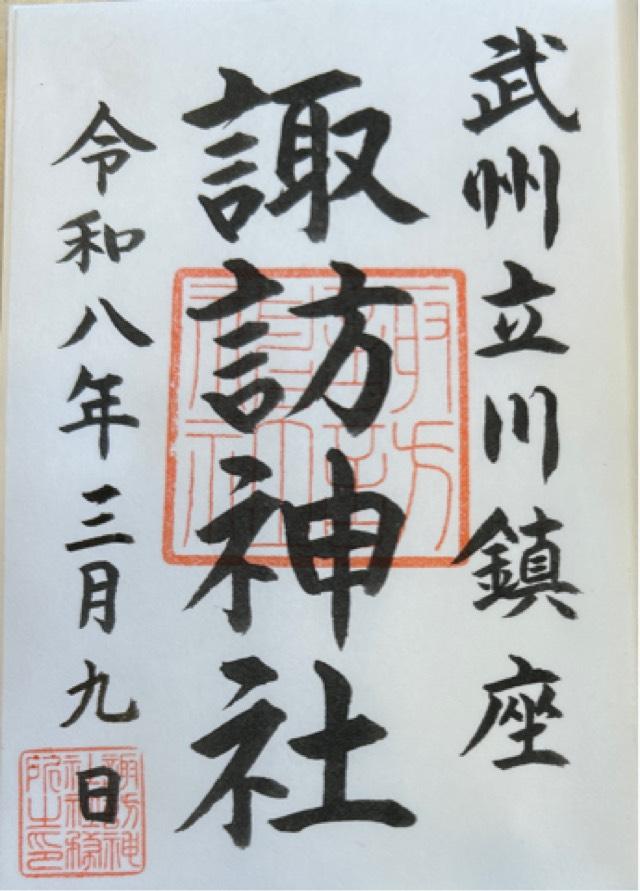 武州立川鎮座
諏訪神社
令和八年三月九日
諏訪神社社務所之印